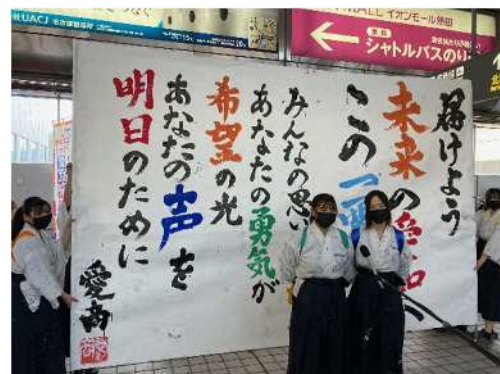 UACJ
MALL イオンモール熱田
無料
シャトルバスのり
届けよう
未来の愛知
この一票
みんなの思い
あなたの勇気が
希望の光
あなたの声を
明日のために
愛商